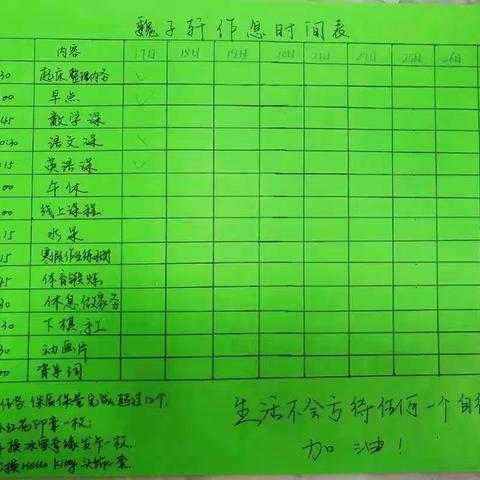 魏子轩作息时间表
内容 17日 18日 19日 20日 21日 24日 25日 26日
30 起床整理内务
00 早点
45 数学课
0:30 语文课
:15 英语课
00 午休
00 线上课程
:15 水果
15 寒假作业练习
45 体育锻炼
30 休息、做家务
30 下棋、手工
30 动画片
00 背单词
任务,保质保量完成,超过12个,
小红花印章一枚;
换冰雪奇缘发卡一枚.
换Hello Kitty头饰一套.
生活不会亏待任何一个自律
加油!